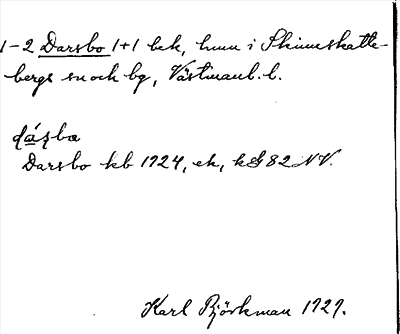 1-2 Darsbo 1+1 bek, hmn i Skinnskatte-
bergs sn och bg, Västmanl. l.
dásbo
Darsbo kb 1724, ek, kG 82 NV.
Karl Björkman 1929.